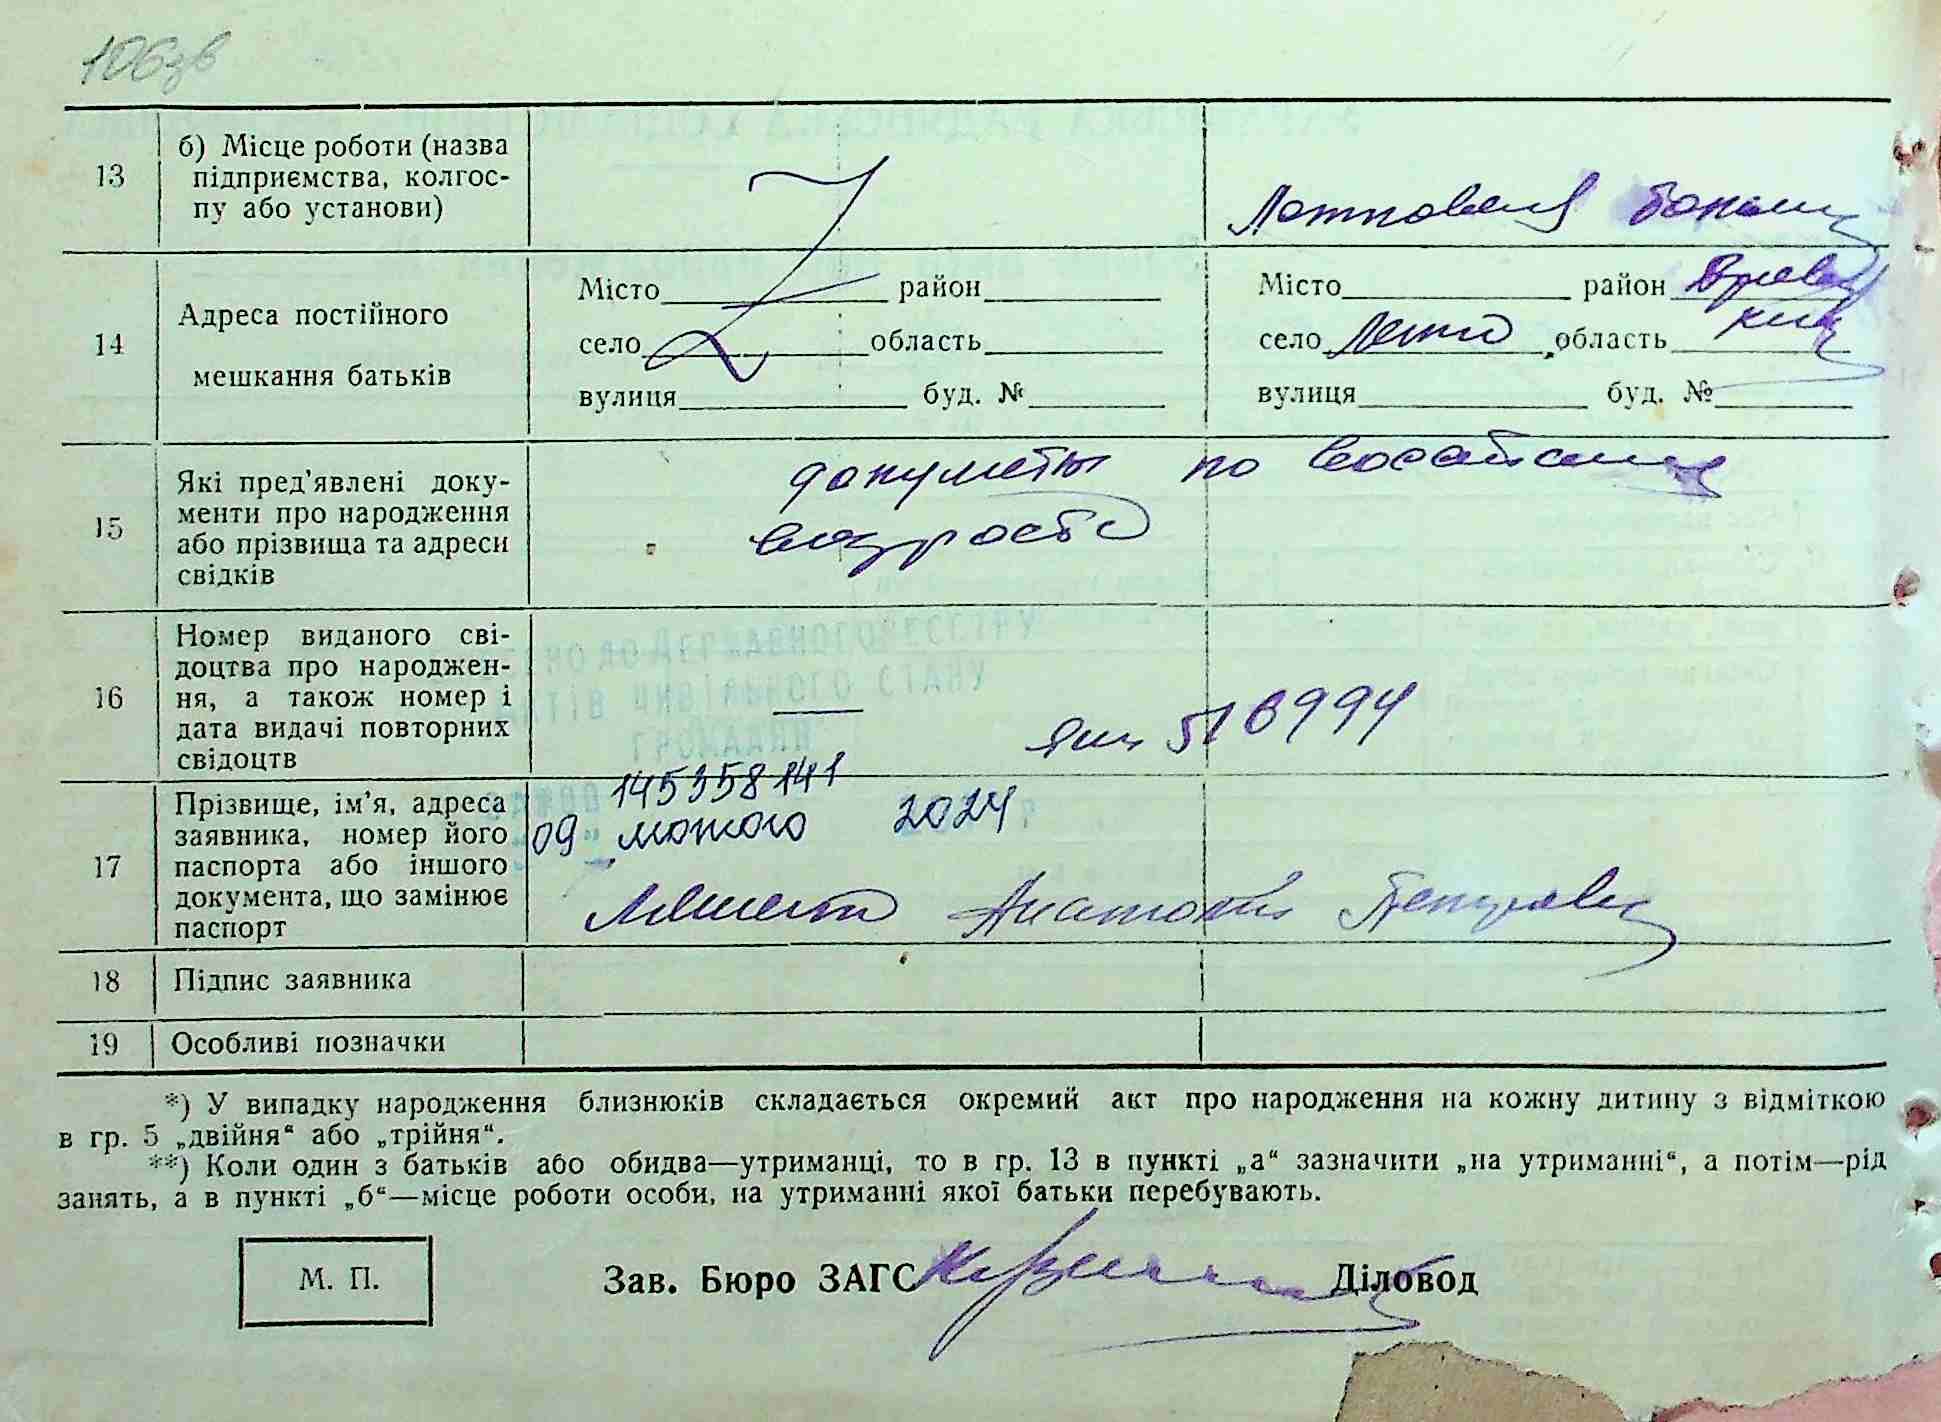 106зв
13
б) Місце роботи (назва
підприємства, колгос-
пу або установи)
14
Адреса постійного
мешкання батьків
Місто район
село область
вулиця буд. №
Місто район
село область
вулиця буд. №
15
Які пред'явлені доку-
менти про народження
або прізвища та адреси
свідків
документы по
возраста
16
Номер виданого сві-
доцтва про народжен-
ня, а також номер і
дата видачі повторних
свідоцтв
ДО ДЕРЖАВНОГО РЕЄСТРУ
АКТІВ ЦИВІЛЬНОГО СТАНУ
ГРОМАДЯН
516994
17
Прізвище, ім'я, адреса
заявника, номер його
паспорта або іншого
документа, що замінює
паспорт
145358141
09 лютого 2024
Анатолій Петрович
18
Підпис заявника
19
Особливі позначки
*) У випадку народження близнюків складається окремий акт про народження на кожну дитину з відміткою
в гр. 5 „двійня“ або „трійня“.
**) Коли один з батьків або обидва—утриманці, то в гр. 13 в пункті „а“ зазначити „на утриманні“, а потім—рід
занять, а в пункті „б“—місце роботи особи, на утриманні якої батьки перебувають.
М. П.
Зав. Бюро ЗАГС Діловод